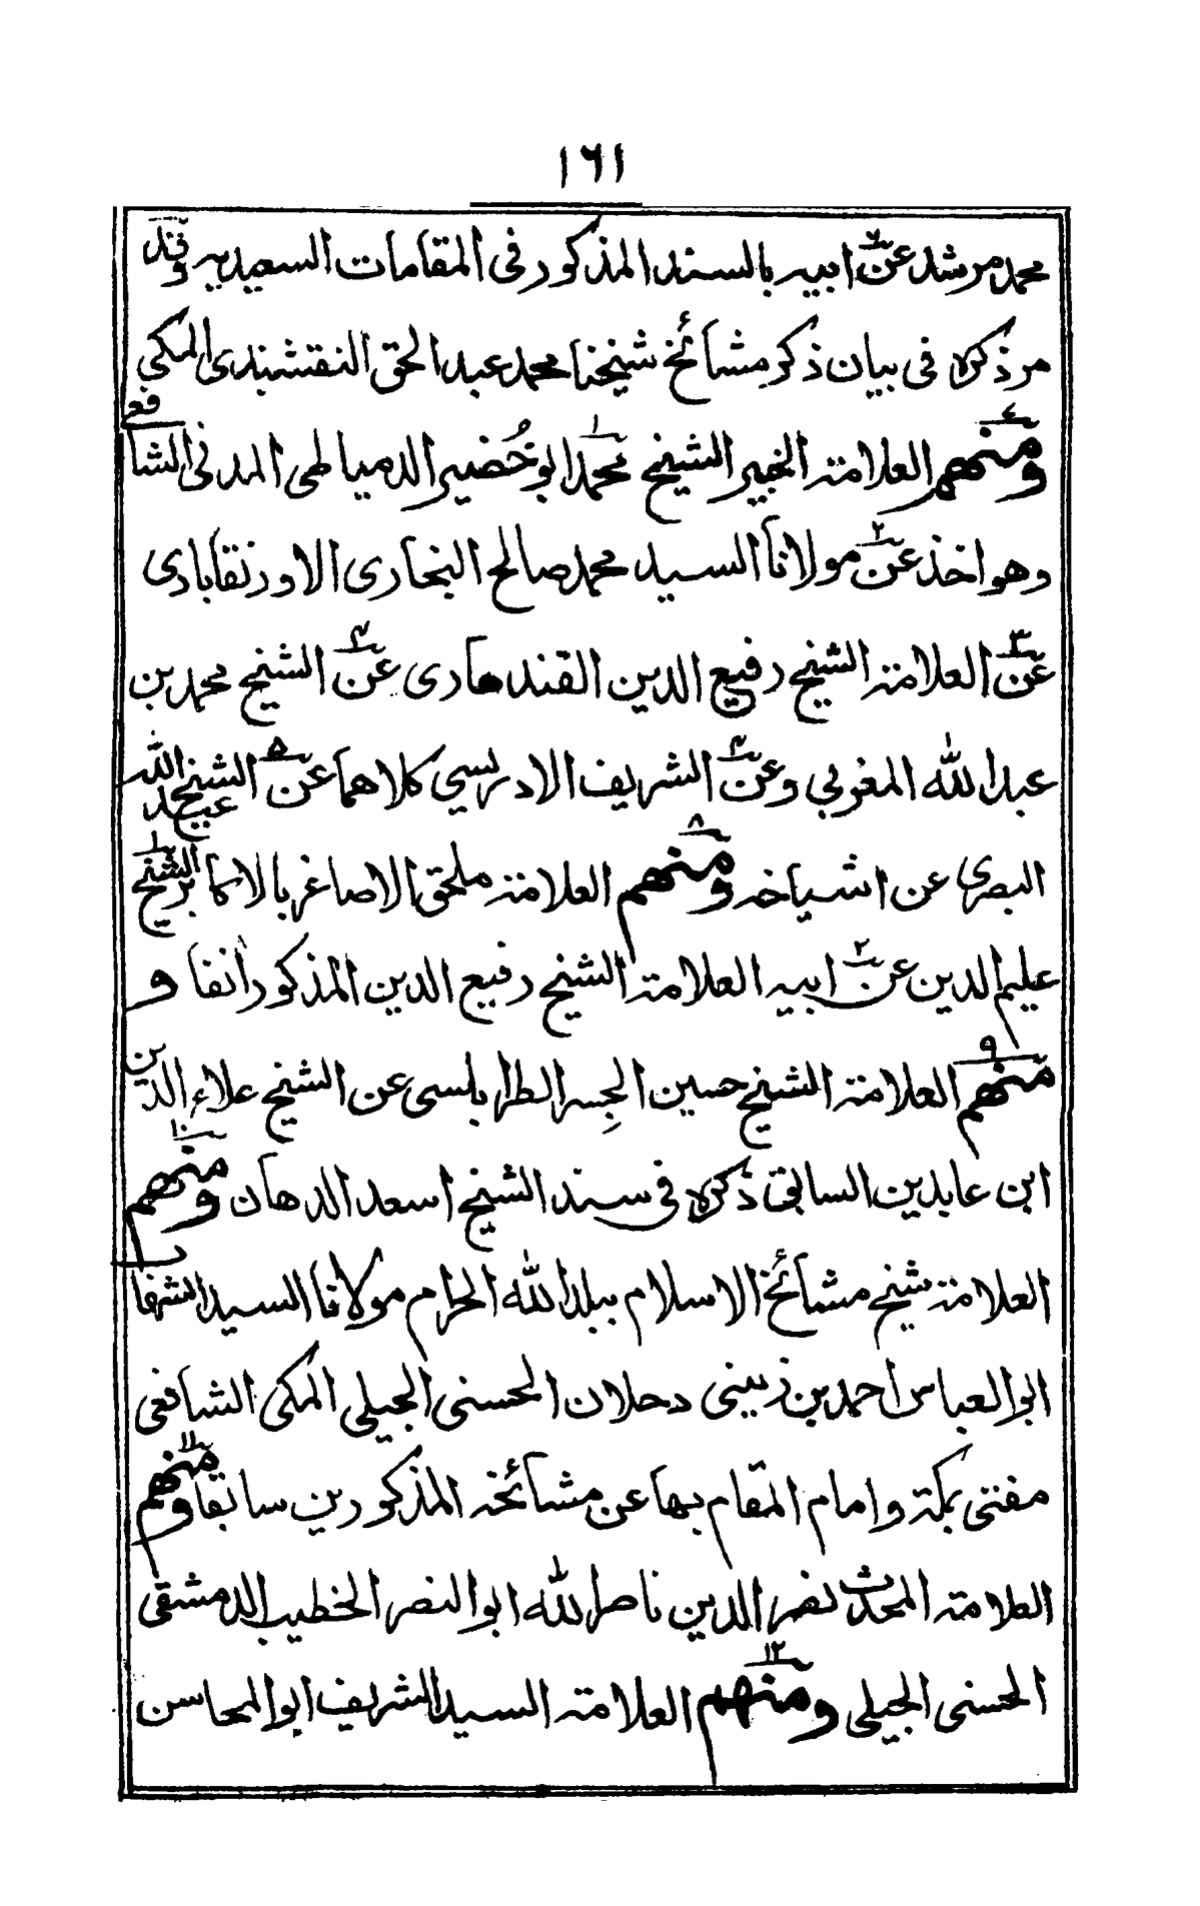 ١٦١
محمد مرشد عن٢ ابيه بالسند المذكور فى المقامات السعيديه وقد
مر ذكره فى بيان ذكر مشائخ شيخنا محمد عبد الحق النقشبندى المكى
ومنهم العلامة الخبير الشيخ محمد١ ابو خُضير الدمياطى المدنى الشافعى
وهو اخذ عن٢ مولانا السيد محمد صالح البخارى الاورنقابادى
عن٣ العلامة الشيخ رفيع الدين القندهارى عن٤ الشيخ محمد بن
عبد الله المغربي وعن٤ الشريف الادريسي كلاهما عن٥ الشيخ عبد الله
البصرى عن اشياخه ومنهم٨ العلامة ملحق الاصاغر بالاكابر الشيخ١
عليم الدين عن٢ ابيه العلامة الشيخ رفيع الدين المذكور انفا و
منهم٩ العلامة الشيخ حسين الجِسر الطرابلسى عن الشيخ علاء الدين
ابن عابدين السابق ذكره فى سند الشيخ اسعد الدهان ومنهم١٠
العلامة شيخ مشائخ الاسلام ببلد الله الحرام مولانا السيد الشهاب
ابو العباس احمد بن زينى دحلان الحسنى الجيلي المكى الشافعى
مفتى بمكة وامام المقام بها عن مشائخه المذكورين سابقا ومنهم١١
العلامة المحدث نصر الدين ناصر الله ابو النصر الخطيب الدمشقى
الحسنى الجيلى ومنهم١٢ العلامة السيد الشريف ابو المحاسن